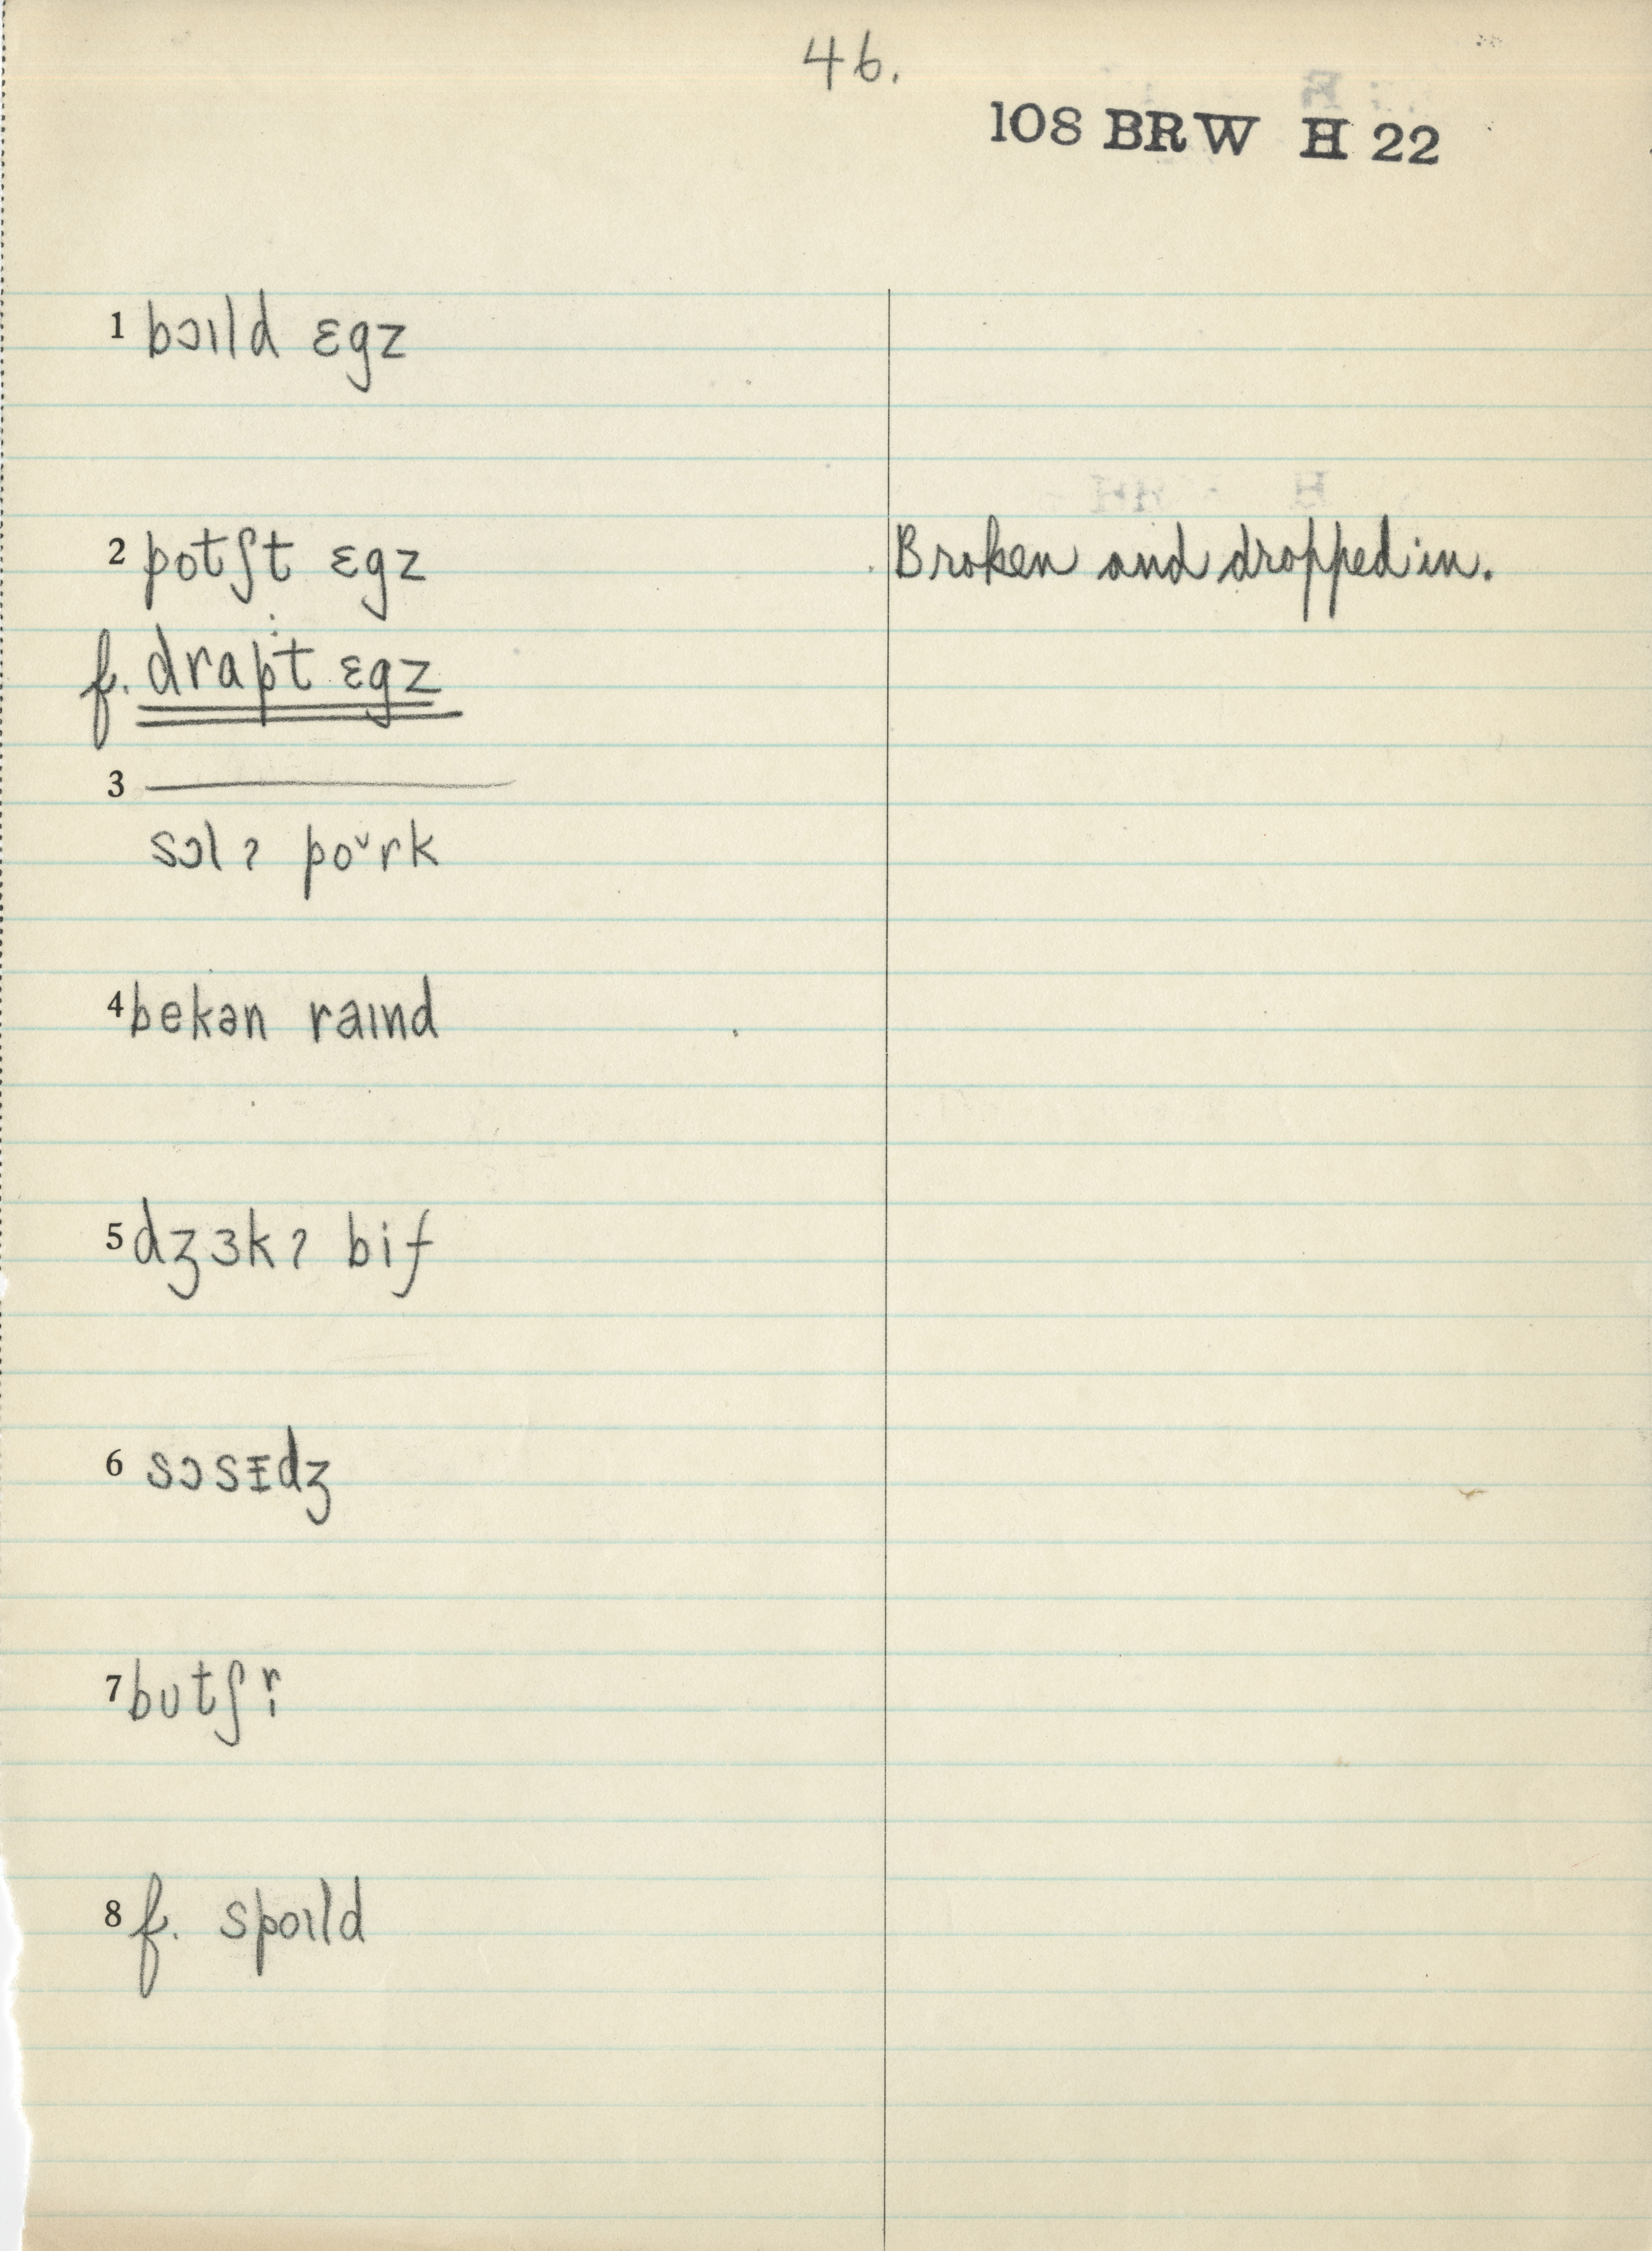 46.
108 BRW H 22
1 bɔɪld ɛgz
2 potʃt ɛgz Broken and dropped in.
f. drapt ɛgz
3 ———
sɔlʔ poᵛrk
4 bekən raɪnd
5 dʒɜkʔ bif
6 sɔsɪdʒ
7 bʊtʃr̩
8 f. spoɪld